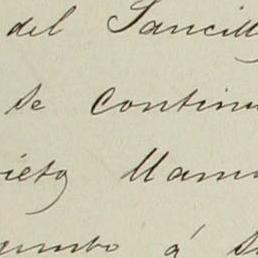 del Sancill
se continu
ieto llama
umbo á s